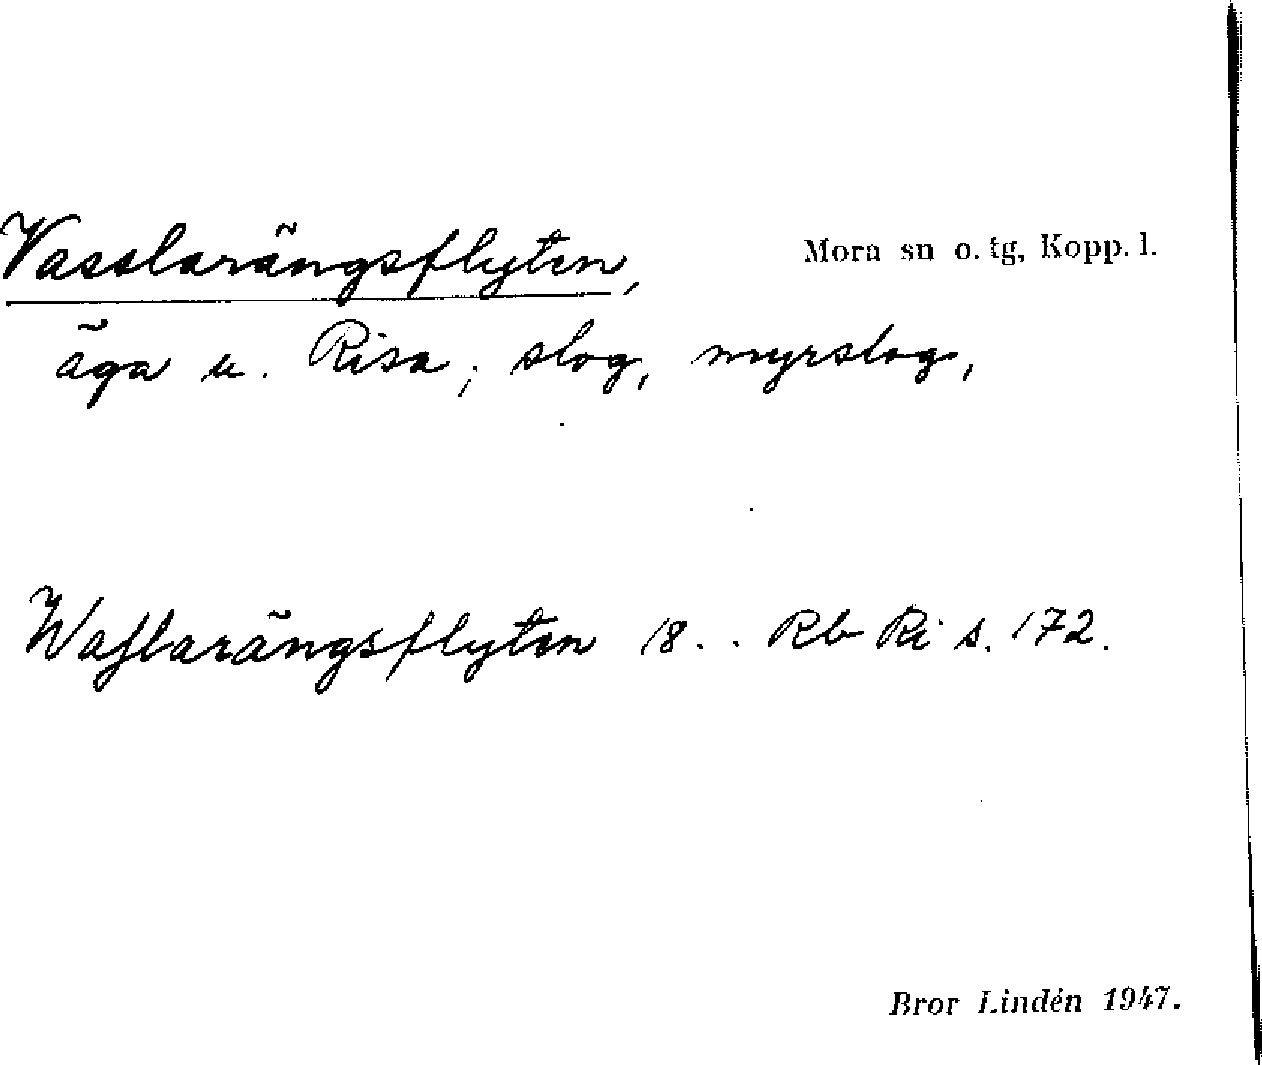 Vasslarängsflyten,
Mora sn o. tg, Kopp. l.
äga u. Risa; slog, myrslog,
Waſslarängsflyten 18.. Rb Ri s. 172.
Bror Lindén 1947.